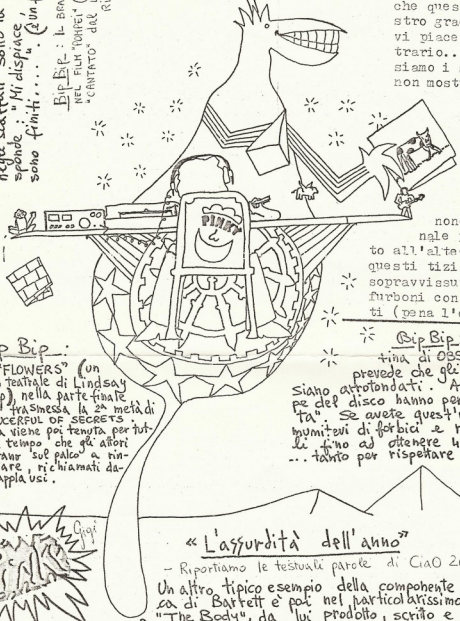 che ques
stro gra
vi piace
trario..
siamo i
non most
sponde : "Mi dispiace,
sono finiti....." (È un f
Bip Bip : IL BRA
NEL FILM "POMPEI" (
"CANTATO" dal
non
nale
to all'alte
questi tizi
sopravvissu
furboni con
ti (pena l'
PINKY
p Bip :
"FLOWERS" (un
teatrale di Lindsay
p), nella parte finale
trasmessa la 2ª metà di
UCERFUL OF SECRETS.
a viene poi tenuta per tut-
tempo che gli attori
rano sul palco a rin-
are, richiamati da-
applausi.
Bip Bip
tina di OBS
prevede che gli
siano arrotondati. A
pe del disco hanno per
ta". Se avete quest'
munitevi di forbici e r
li fino ad ottenere u
... tanto per rispettare
Gigi
"L'assurdità dell'anno"
- Riportiamo le testuali parole di Ciao 2
Un altro tipico esempio della componente
ca di Barrett è poi nel particolarissimo
"The Body", da lui prodotto, scritto e